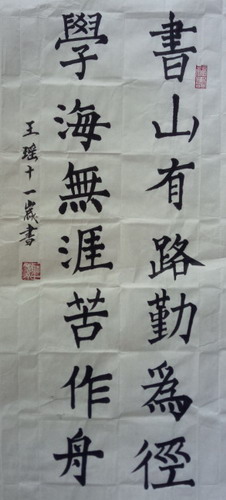 書山有路勤為徑
學海無涯苦作舟
王瑶十一歲書